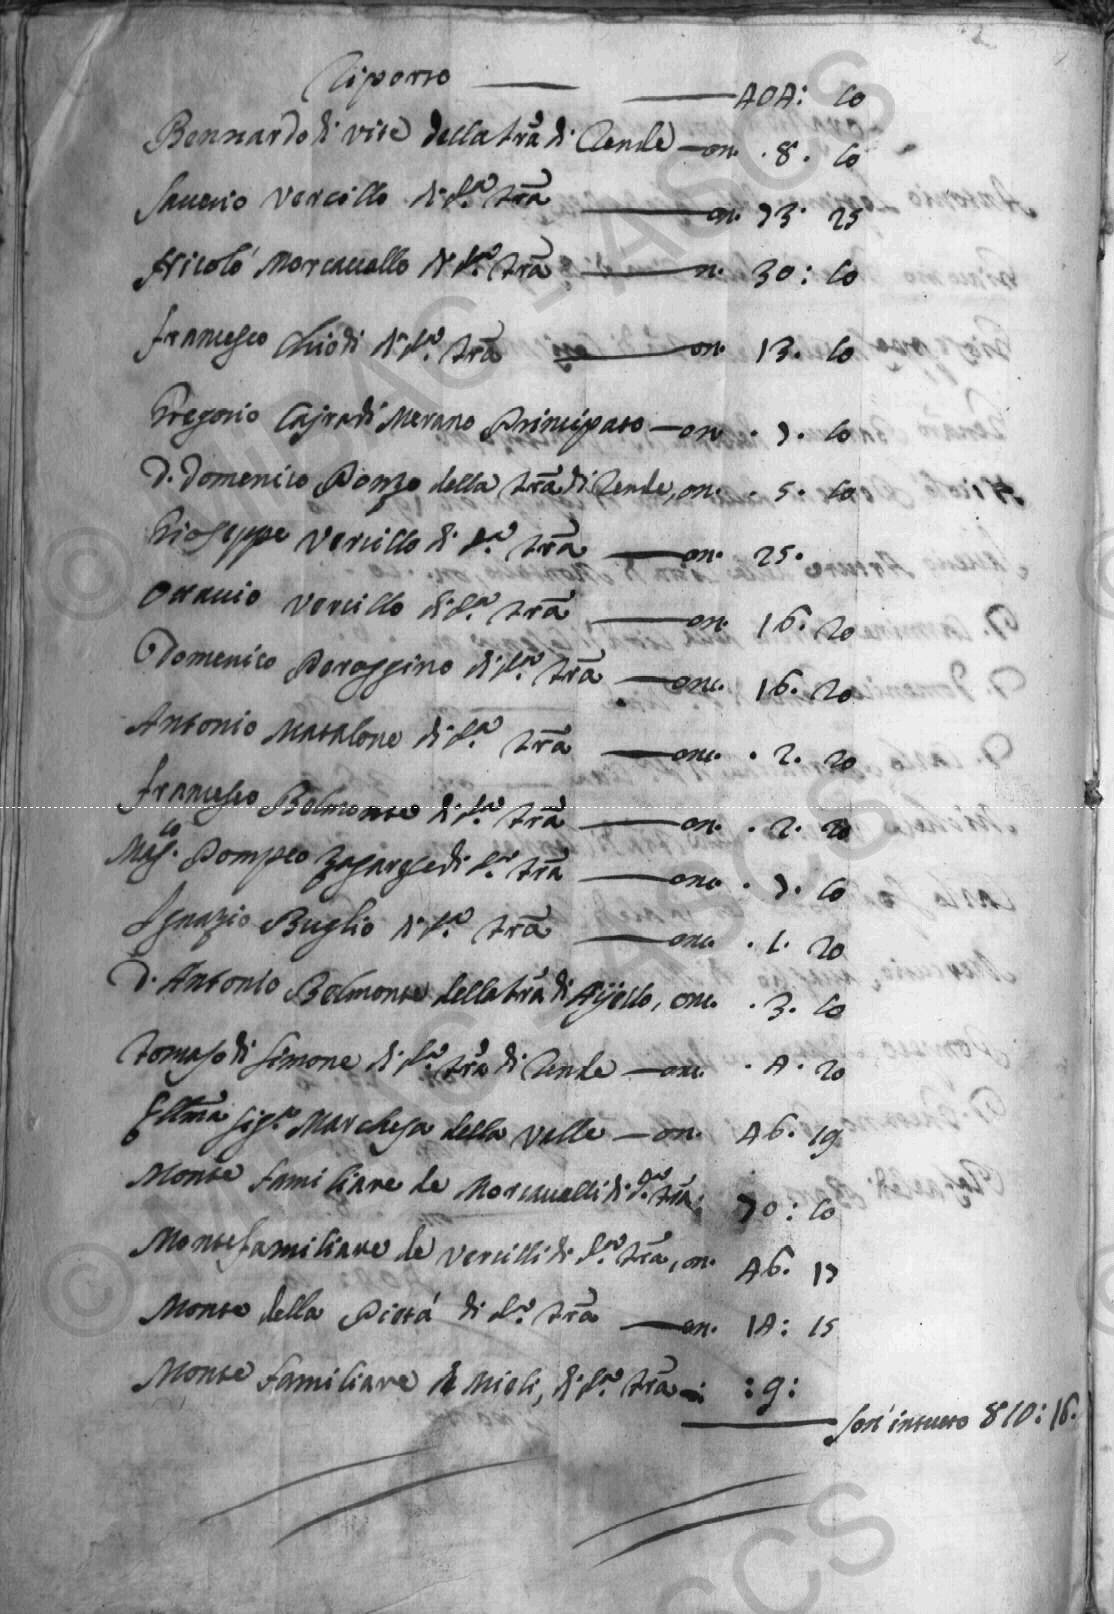 2
Riporto — — 404: 10
Bennardo di Vite della trā di Rende — on. . 8. 10
Saverio Vercillo di d.ª trā — on. 73. 25
Nicolò Morcavallo di d.ª trā — on. 30: 10
Francesco Chiodi di d.ª trā — on. 13. 10
Gregorio Cajra di Merano Principato — on . 7. 10
D. Domenico Ponzo della trā di Rende, on. . 5. 10
Gioseppe Vercillo di d.ª trā — on. 25.
Ottavio Vercillo di d.ª trā — on. 16. 20
Domenico Peroggino di d.ª trā — onc. 16. 20
Antonio Matalone di d.ª trā — onc. . 2. 20
Francesco Belmonte di d.ª trā — on. . 2. 20
Mag.co Pompeo Zagarese di d.ª trā — onc. . 7. 10
Ignazio Buglio di d.ª trā — onc. . 1. 20
D. Antonio Belmonte della trā di Ajello, onc. . 3. 10
Tomaso di Simone di d.ª trā di Rende — onc. . 4. 20
Ill̃ma Sig.ª Marchesa della Valle — on. 46. 19
Monte familiare de Morcavalli di d.ª trā: 70: 10
Monte familiare de Vercilli di d.ª trā, on. 46. 17
Monte della Pietá di d.ª trā — on. 14: 15
Monte familiare de Mieli, di d.ª trā : 9:
Son' in tutto 810: 16.
© MIBAC - ASCS
© MIBAC - ASCS